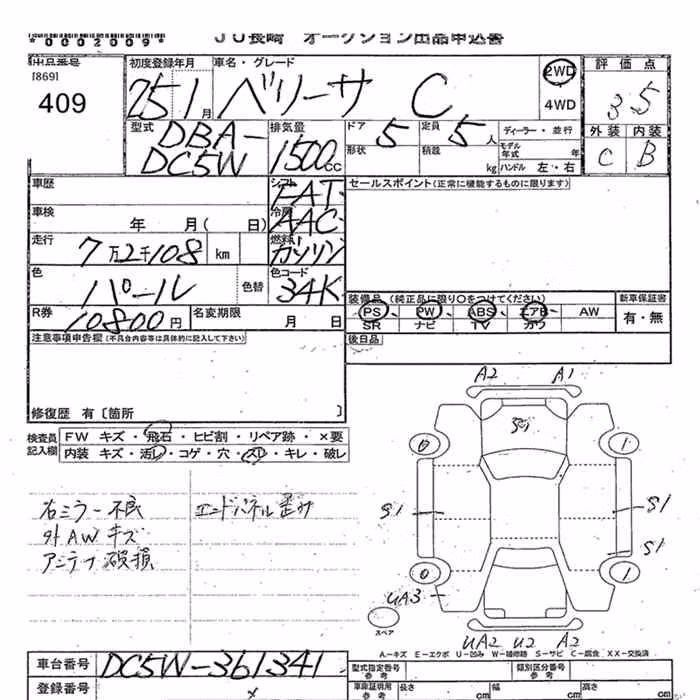 *0002009*
JU長崎 オークション出品申込書
出品番号 初度登録年月 車名・グレード 2WD 評価点
[869]
409 25 1月 ベリーサ C 4WD 3.5
型式 排気量 ドア 5 定員 5人 ディーラー・並行 外装 内装
DBA-
DC5W 1500CC 形状 積載 kg モデル年式 年 ハンドル 左・右 C B
車歴 シフト FAT セールスポイント(正常に機能するものに限ります)
車検 年 月( 日) 冷房 AAC
走行 7万2千108 km 燃料 ガソリン
色 パール 色替 色コード 34K
装備品(純正品に限り〇をつけてください) 新車保証書
R券 10800円 名変期限 月 日 PS PW ABS エアB AW 有・無
SR ナビ TV カワ
注意事項申告欄(不具合内容等は具体的に記入して下さい) 後日品
修復歴 有〔箇所 〕
検査員 FW キズ・飛石・ヒビ割・リペア跡・×要
記入欄 内装 キズ・汚レ・コゲ・穴・スレ・キレ・破レ
A2 A1
0 1
右ミラー不良 エンドパネル歪み
外AWキズ
アンテナ破損
S1 S1
S1
0 1
UA3
スペア
UA2 U2 A2
A…キズ E…エクボ U…凹み W…補修跡 S…サビ C…腐食 XX…交換済
車台番号 DC5W-361341 型式指定番号 参考 類別区分番号 参考
登録番号 車庫証明用 参考 長さ cm 幅 cm 高さ cm